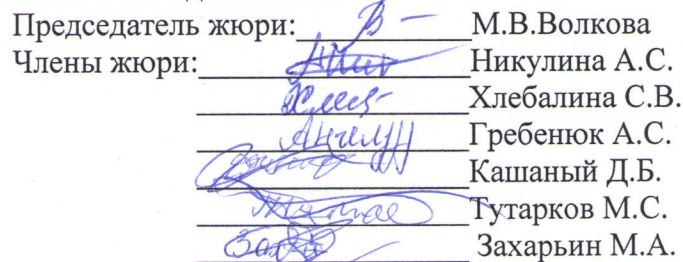 Председатель жюри: М.В.Волкова
Члены жюри: Никулина А.С.
Хлебалина С.В.
Гребенюк А.С.
Кашаный Д.Б.
Тутарков М.С.
Захарьин М.А.